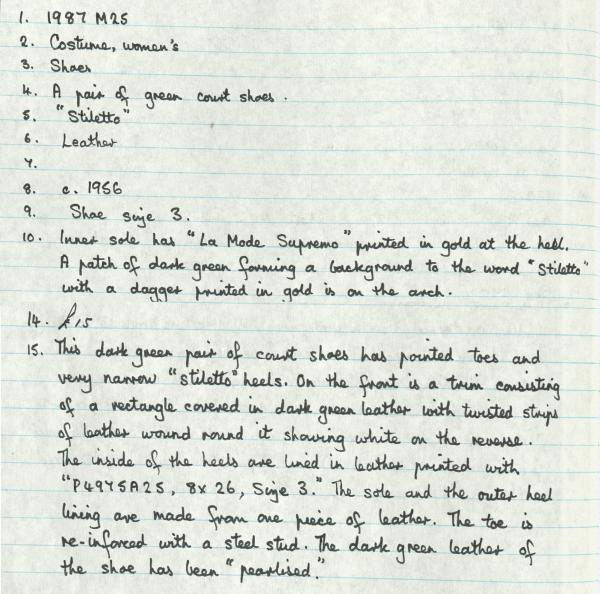 1. 1987 M25
2. Costume, women's
3. Shoes
4. A pair of green court shoes.
5. "Stiletto"
6. Leather
7.
8. c. 1956
9. Shoe size 3.
10. Inner sole has "La Mode Supremo" printed in gold at the heel.
A patch of dark green forming a background to the word "Stiletto"
with a dagger printed in gold is on the arch.
14. £15
15. This dark green pair of court shoes has pointed toes and
very narrow "stiletto" heels. On the front is a trim consisting
of a rectangle covered in dark green leather with twisted strips
of leather wound round it showing white on the reverse.
The inside of the heels are lined in leather printed with
"P4975A25, 8x 26, Size 3." The sole and the outer heel
lining are made from one piece of leather. The toe is
re-inforced with a steel stud. The dark green leather of
the shoe has been "pearlised."